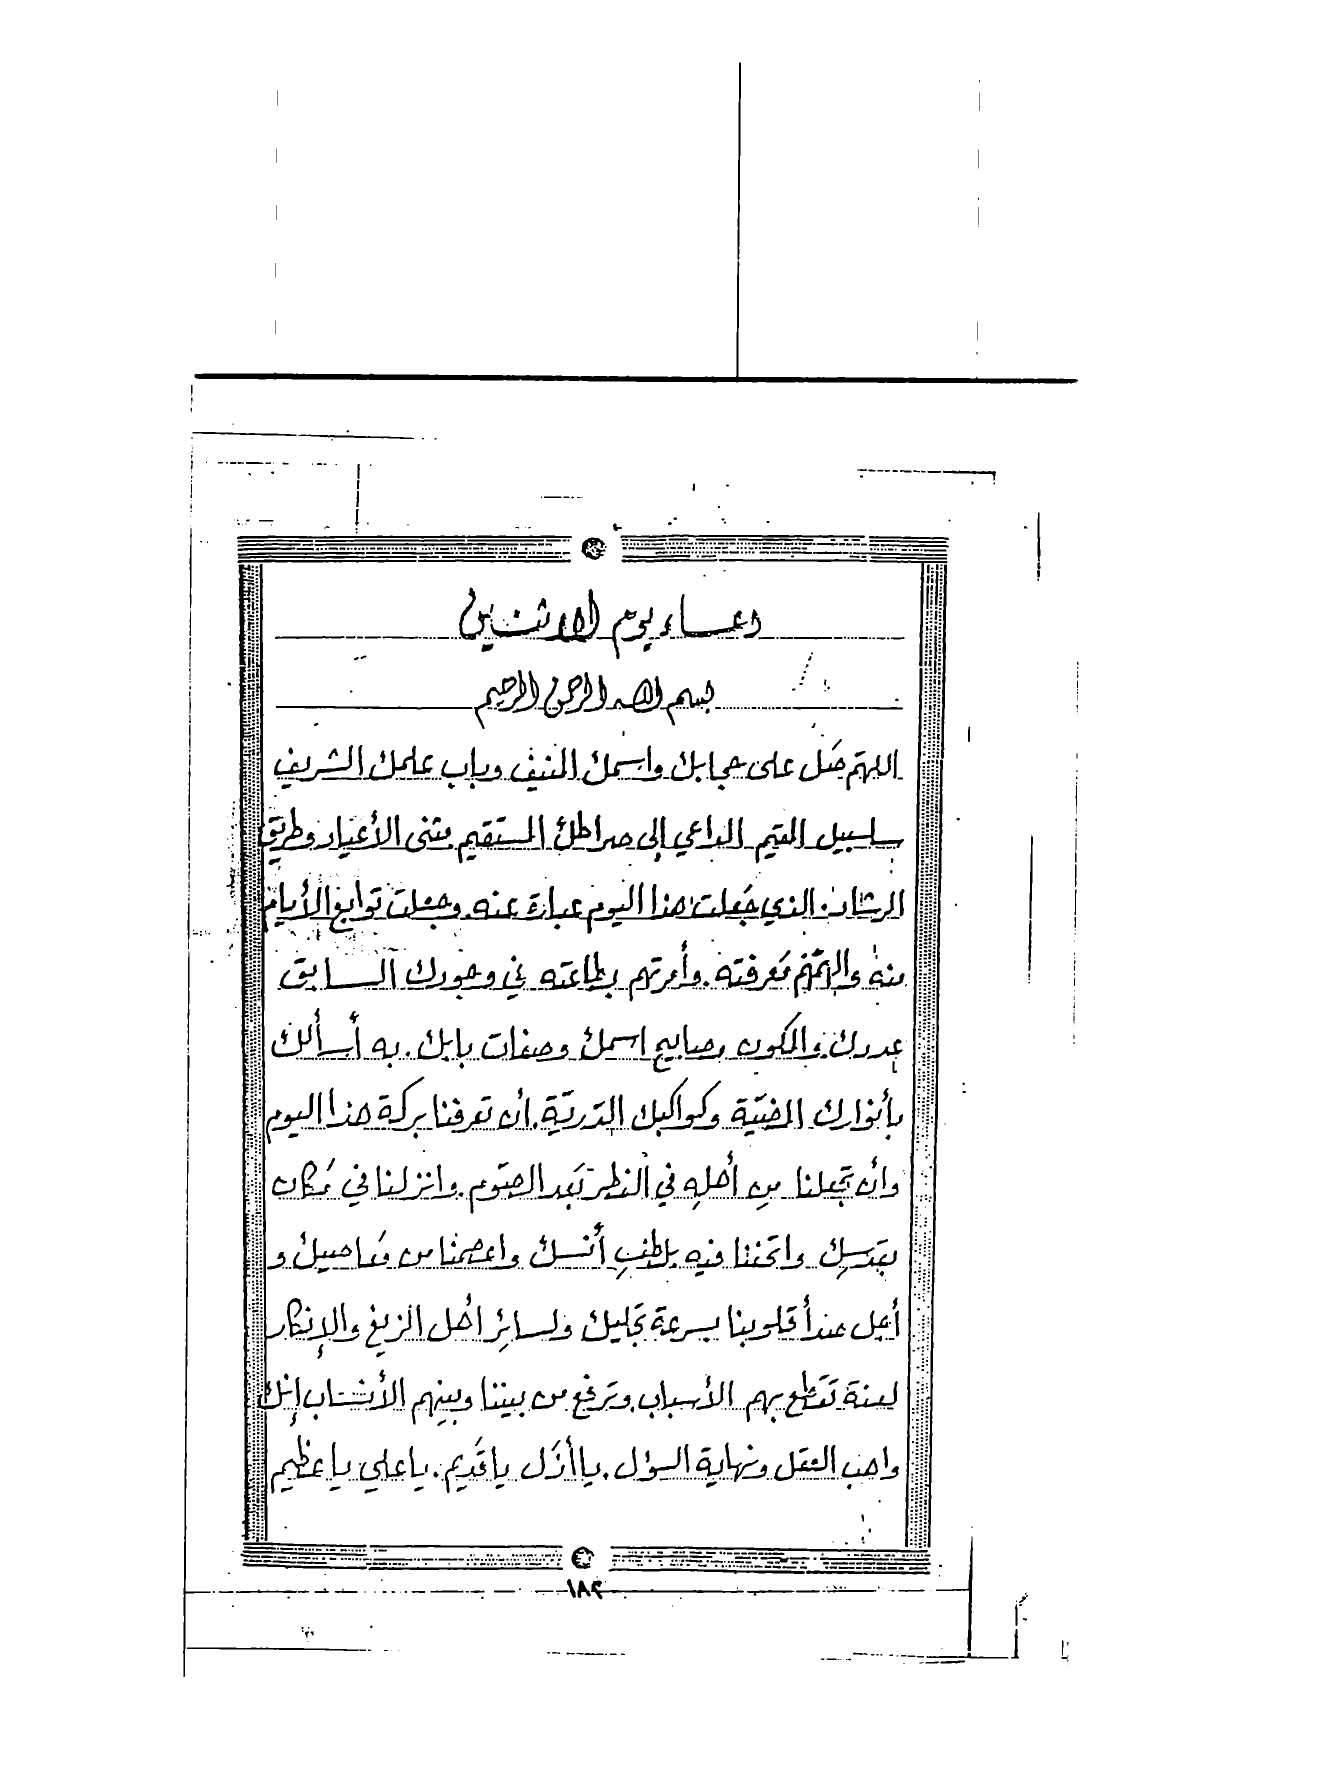 دعاء يوم الاثنين
بسم الله الرحمن الرحيم
اللهم صَل على حجابك واسمك المنيف وباب علمك الشريف
سلسبيل المقيم الداعي إلى صراطك المستقيم مثنى الأعياد وطريق
الرشاد. الذي جَعلت هذا اليوم عبارة عنه. وجعلت توابع الأيام
منه وإلهمتَهم مَعرفته. وأمرتهم بطاعته في وجودك السابق
عددك. والمكون مصابيح اسمك وصفات بابك. به أسألك
بأنوارك المضيّة وكواكبك الدّريّة. أن تعرفنا بركة هذا اليوم
وأن تجعلنا مِن أهلهِ في النظر بَعد الصوم. وانزلنا في مَكان
بقدسِك واتحفنا فيه بلطفِ أنسك واعصمنا من مَعاصيك و
أجل صدأ قلوبنا بسرعة تجليك ولسائِر أهل الزيغ والإنكار
لعنة تَقَطع بهم الأسباب. وتَرفع من بيننا وبينهم الأنساب إنك
واهب العقل ونهاية السؤل. يا أزَل يا قَديم. يا علي يا عظيم
١٨٢